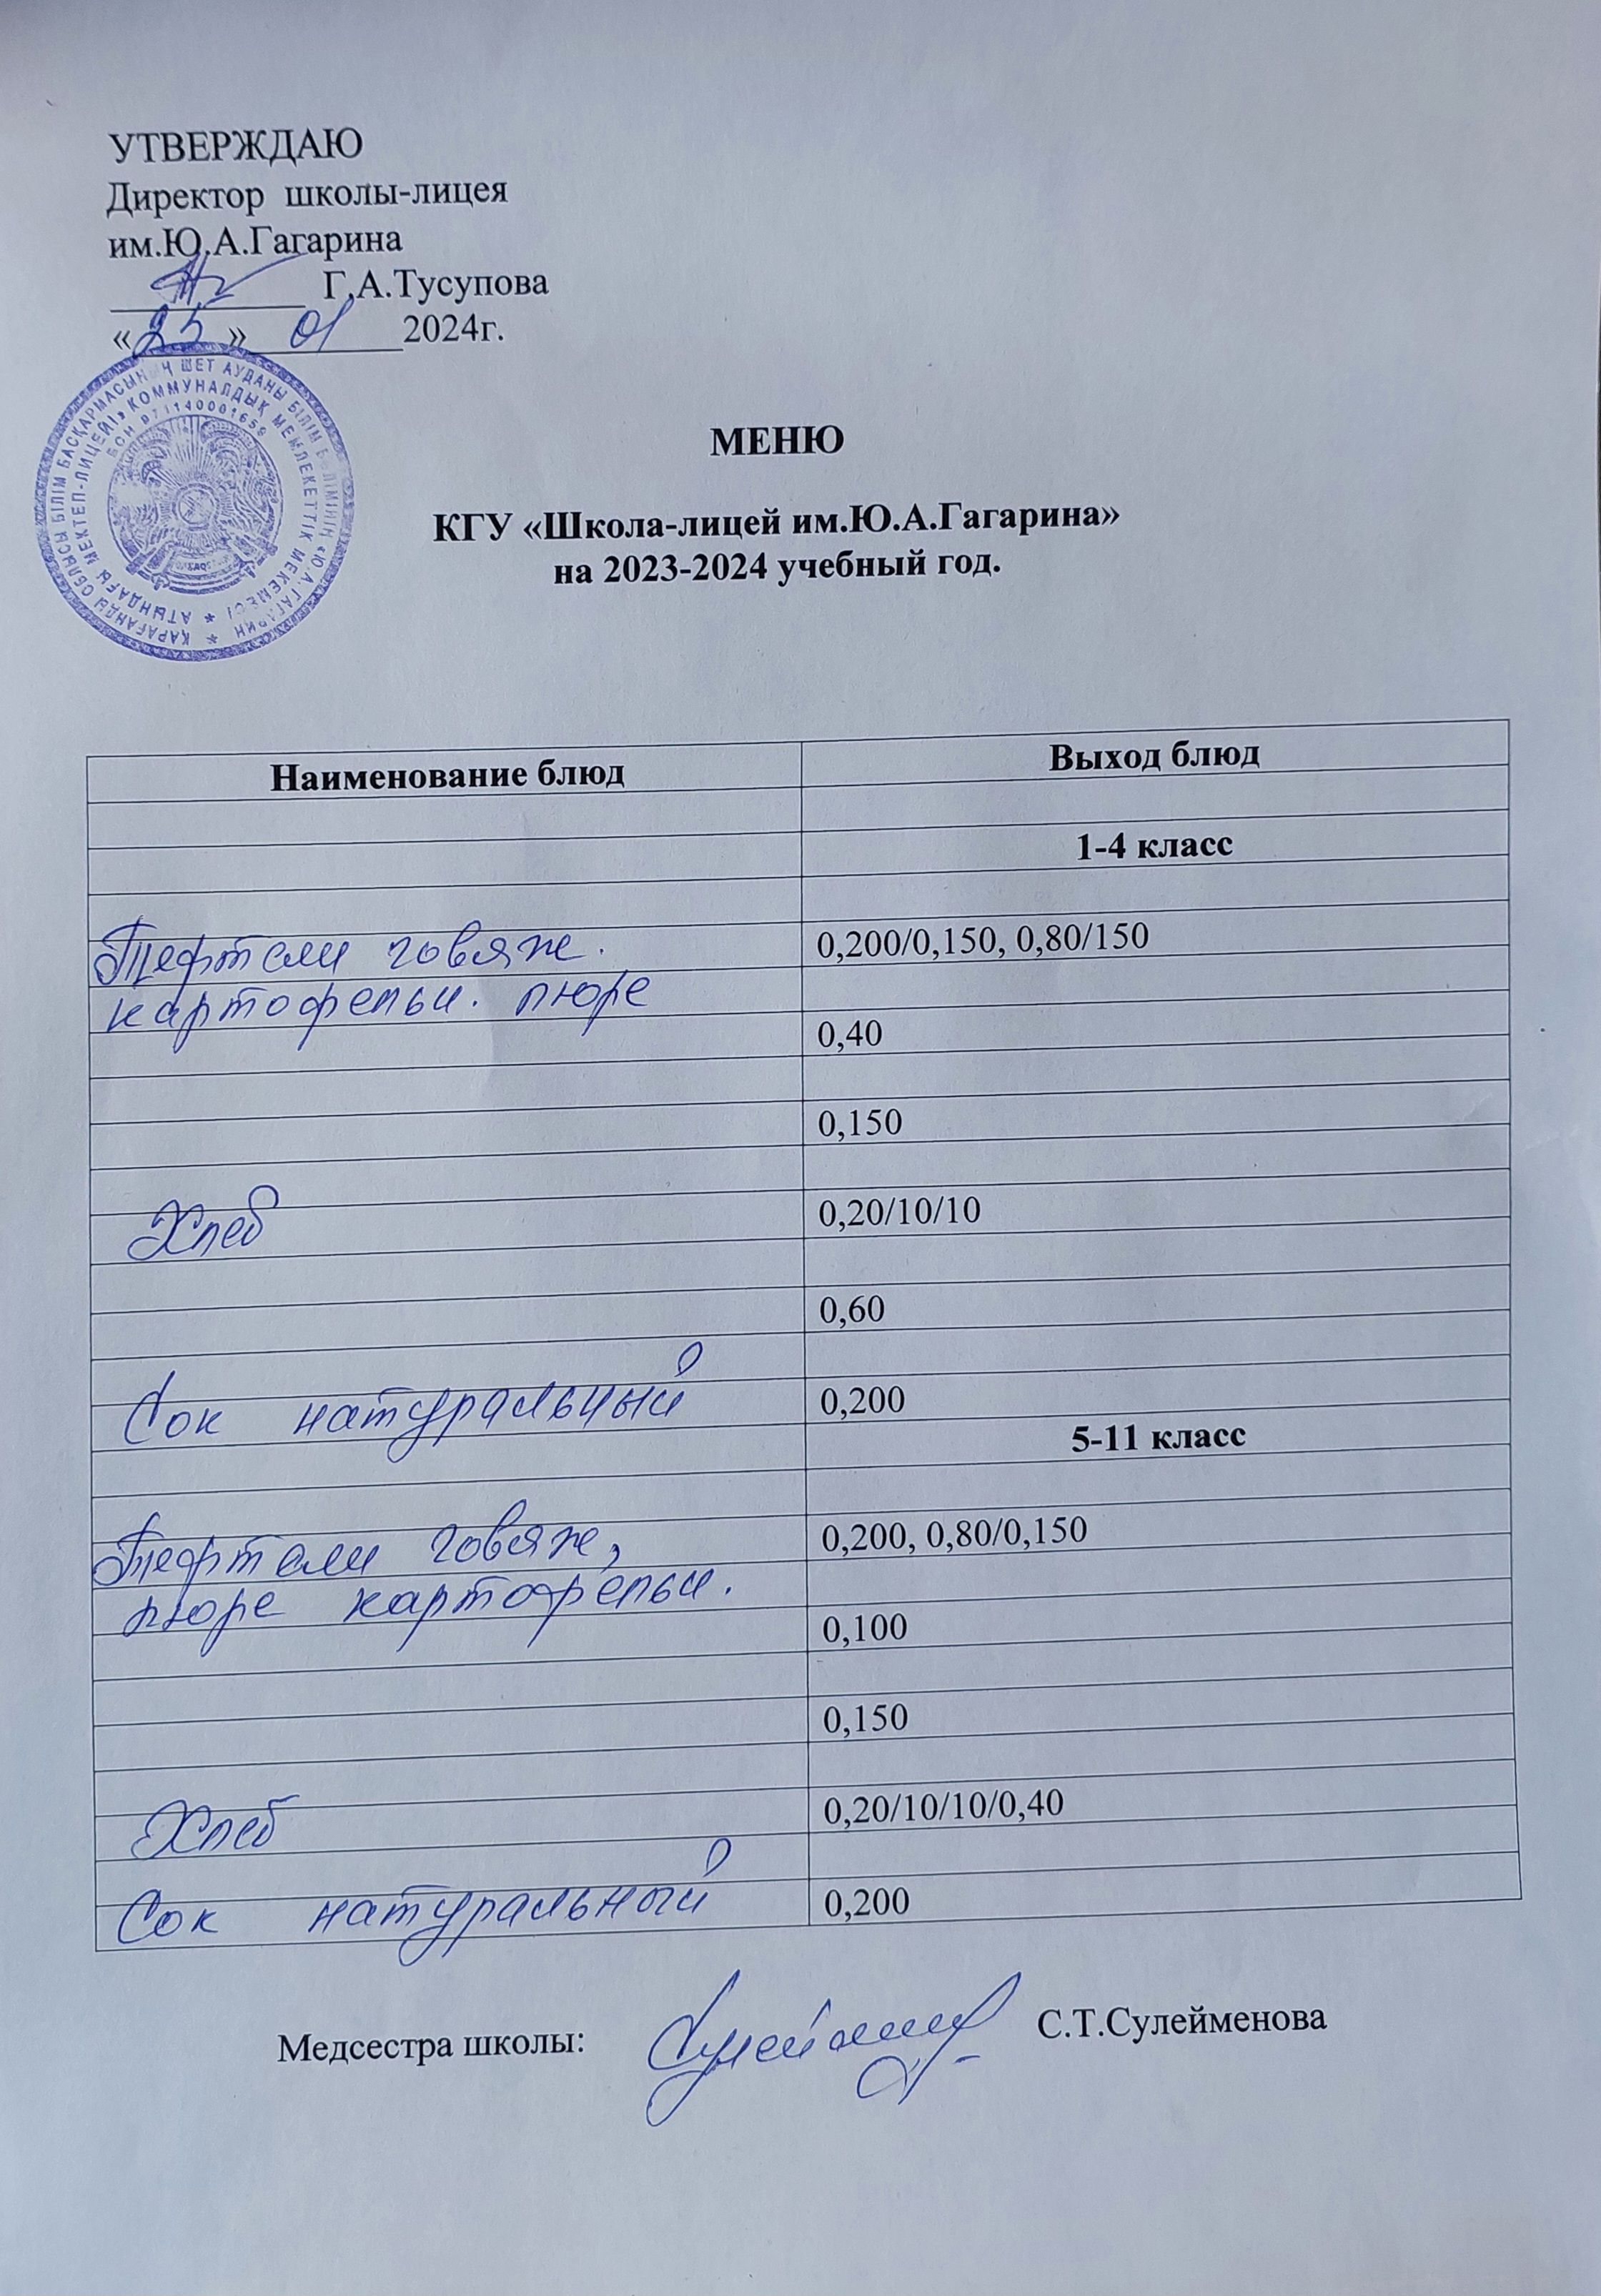 УТВЕРЖДАЮ
Директор школы-лицея
им.Ю.А.Гагарина
Г.А.Тусупова
«25» 01 2024г.
ҚАРАҒАНДЫ ОБЛЫСЫ БІЛІМ БАСҚАРМАСЫНЫҢ ШЕТ АУДАНЫ БІЛІМ БӨЛІМІНІҢ «Ю.А.ГАГАРИН
АТЫНДАҒЫ МЕКТЕП-ЛИЦЕЙІ» КОММУНАЛДЫҚ МЕМЛЕКЕТТІК МЕКЕМЕСІ
МЕНЮ
КГУ «Школа-лицей им.Ю.А.Гагарина»
на 2023-2024 учебный год.
Наименование блюд Выход блюд
1-4 класс
Тефтели говяж. 0,200/0,150, 0,80/150
картофельн. пюре
0,40
0,150
Хлеб 0,20/10/10
0,60
Сок натуральный 0,200
5-11 класс
Тефтели говяж, 0,200, 0,80/0,150
пюре картофельн.
0,100
0,150
Хлеб 0,20/10/10/0,40
Сок натуральный 0,200
Медсестра школы: С.Т.Сулейменова